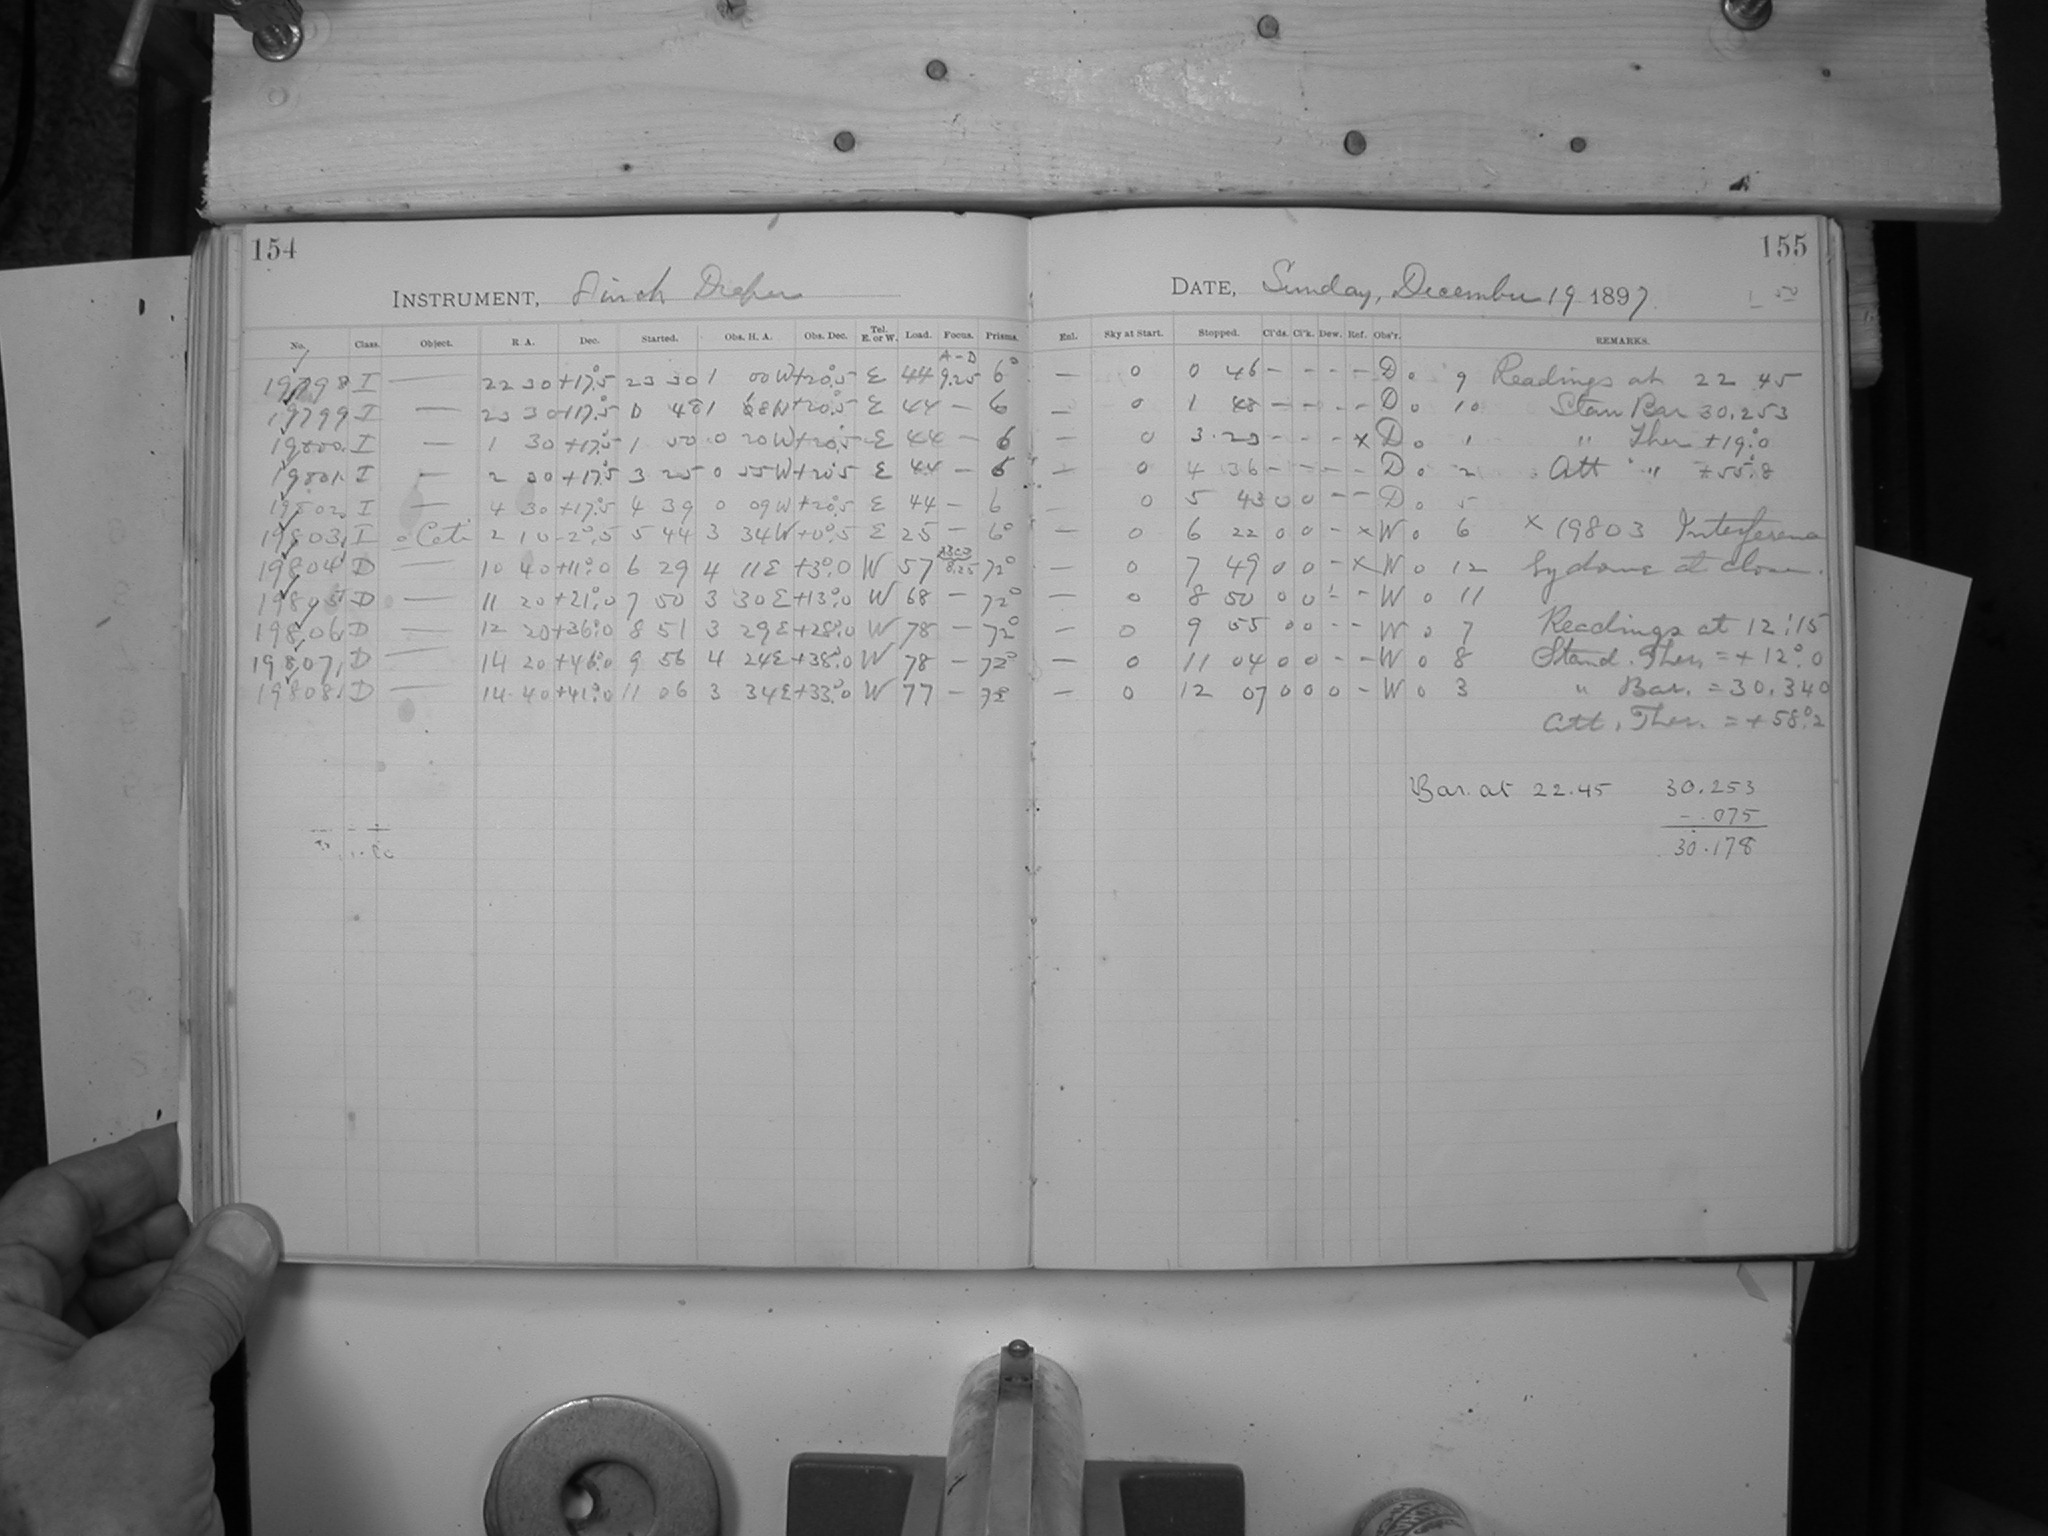 154
INSTRUMENT, 8 inch Draper
No. Class. Object. R A. Dec. Started. Obs. H. A. Obs. Dec. Tel. E. or W. Load. Focus. Prisms.
19798 I — 22 30 +17°.5 23 30 1 00 W +20°.5 E 44 A-D 9.25 6°
19799 I — 23 30 +17°.5 0 48 1 W +20°.5 E 44 — 6
19800. I — 1 30 +17°.5 1 50 0 20 W +20°.5 E 44 — 6
19801. I — 2 30 +17°.5 3 25 0 55 W +20°.5 E 44 — 6
19802. I — 4 30 +17°.5 4 39 0 09 W +20°.5 E 44 — 6
19803. I o Ceti 2 10 -2°.5 5 44 3 34 W +0°.5 E 25 — 6°
19804 D — 10 40 +11°.0 6 29 4 11 E +3°.0 W 57 8.25 72°
19805 D — 11 20 +21°.0 7 50 3 30 E +13°.0 W 68 — 72°
19806. D — 12 20 +36°.0 8 51 3 29 E +28°.0 W 78 — 72°
19807. D — 14 20 +46°.0 9 56 4 24 E +38°.0 W 78 — 72°
19808. D — 14 40 +41°.0 11 06 3 34 E +33°.0 W 77 — 72
155
DATE, Sunday, December 19 1897
Enl. Sky at Start. Stopped. Cl'ds. Cl'k. Dew. Ref. Obs'r. REMARKS.
— 0 0 46 - - - - D o 9 Readings at 22 45
— 0 1 48 - - - - D o 10 Stan Bar 30.253
— 0 3.23 - - - x D o 1 " Ther +19°.0
— 0 4 36 - - - - D o 2 Att " +55°.8
0 5 43 0 0 - - D o 5
— 0 6 22 0 0 - x W o 6 x 19803 Interference
— 0 7 49 0 0 - x W o 12 by dome at close.
— 0 8 50 0 0 - - W o 11
— 0 9 55 0 0 - - W o 7 Readings at 12:15
— 0 11 04 0 0 - - W o 8 Stand. Ther. = +12°.0
— 0 12 07 0 0 0 - W o 3 " Bar. = 30.340
Att. Ther. = +58°.2
Bar. at 22.45 30.253
- .075
30.178